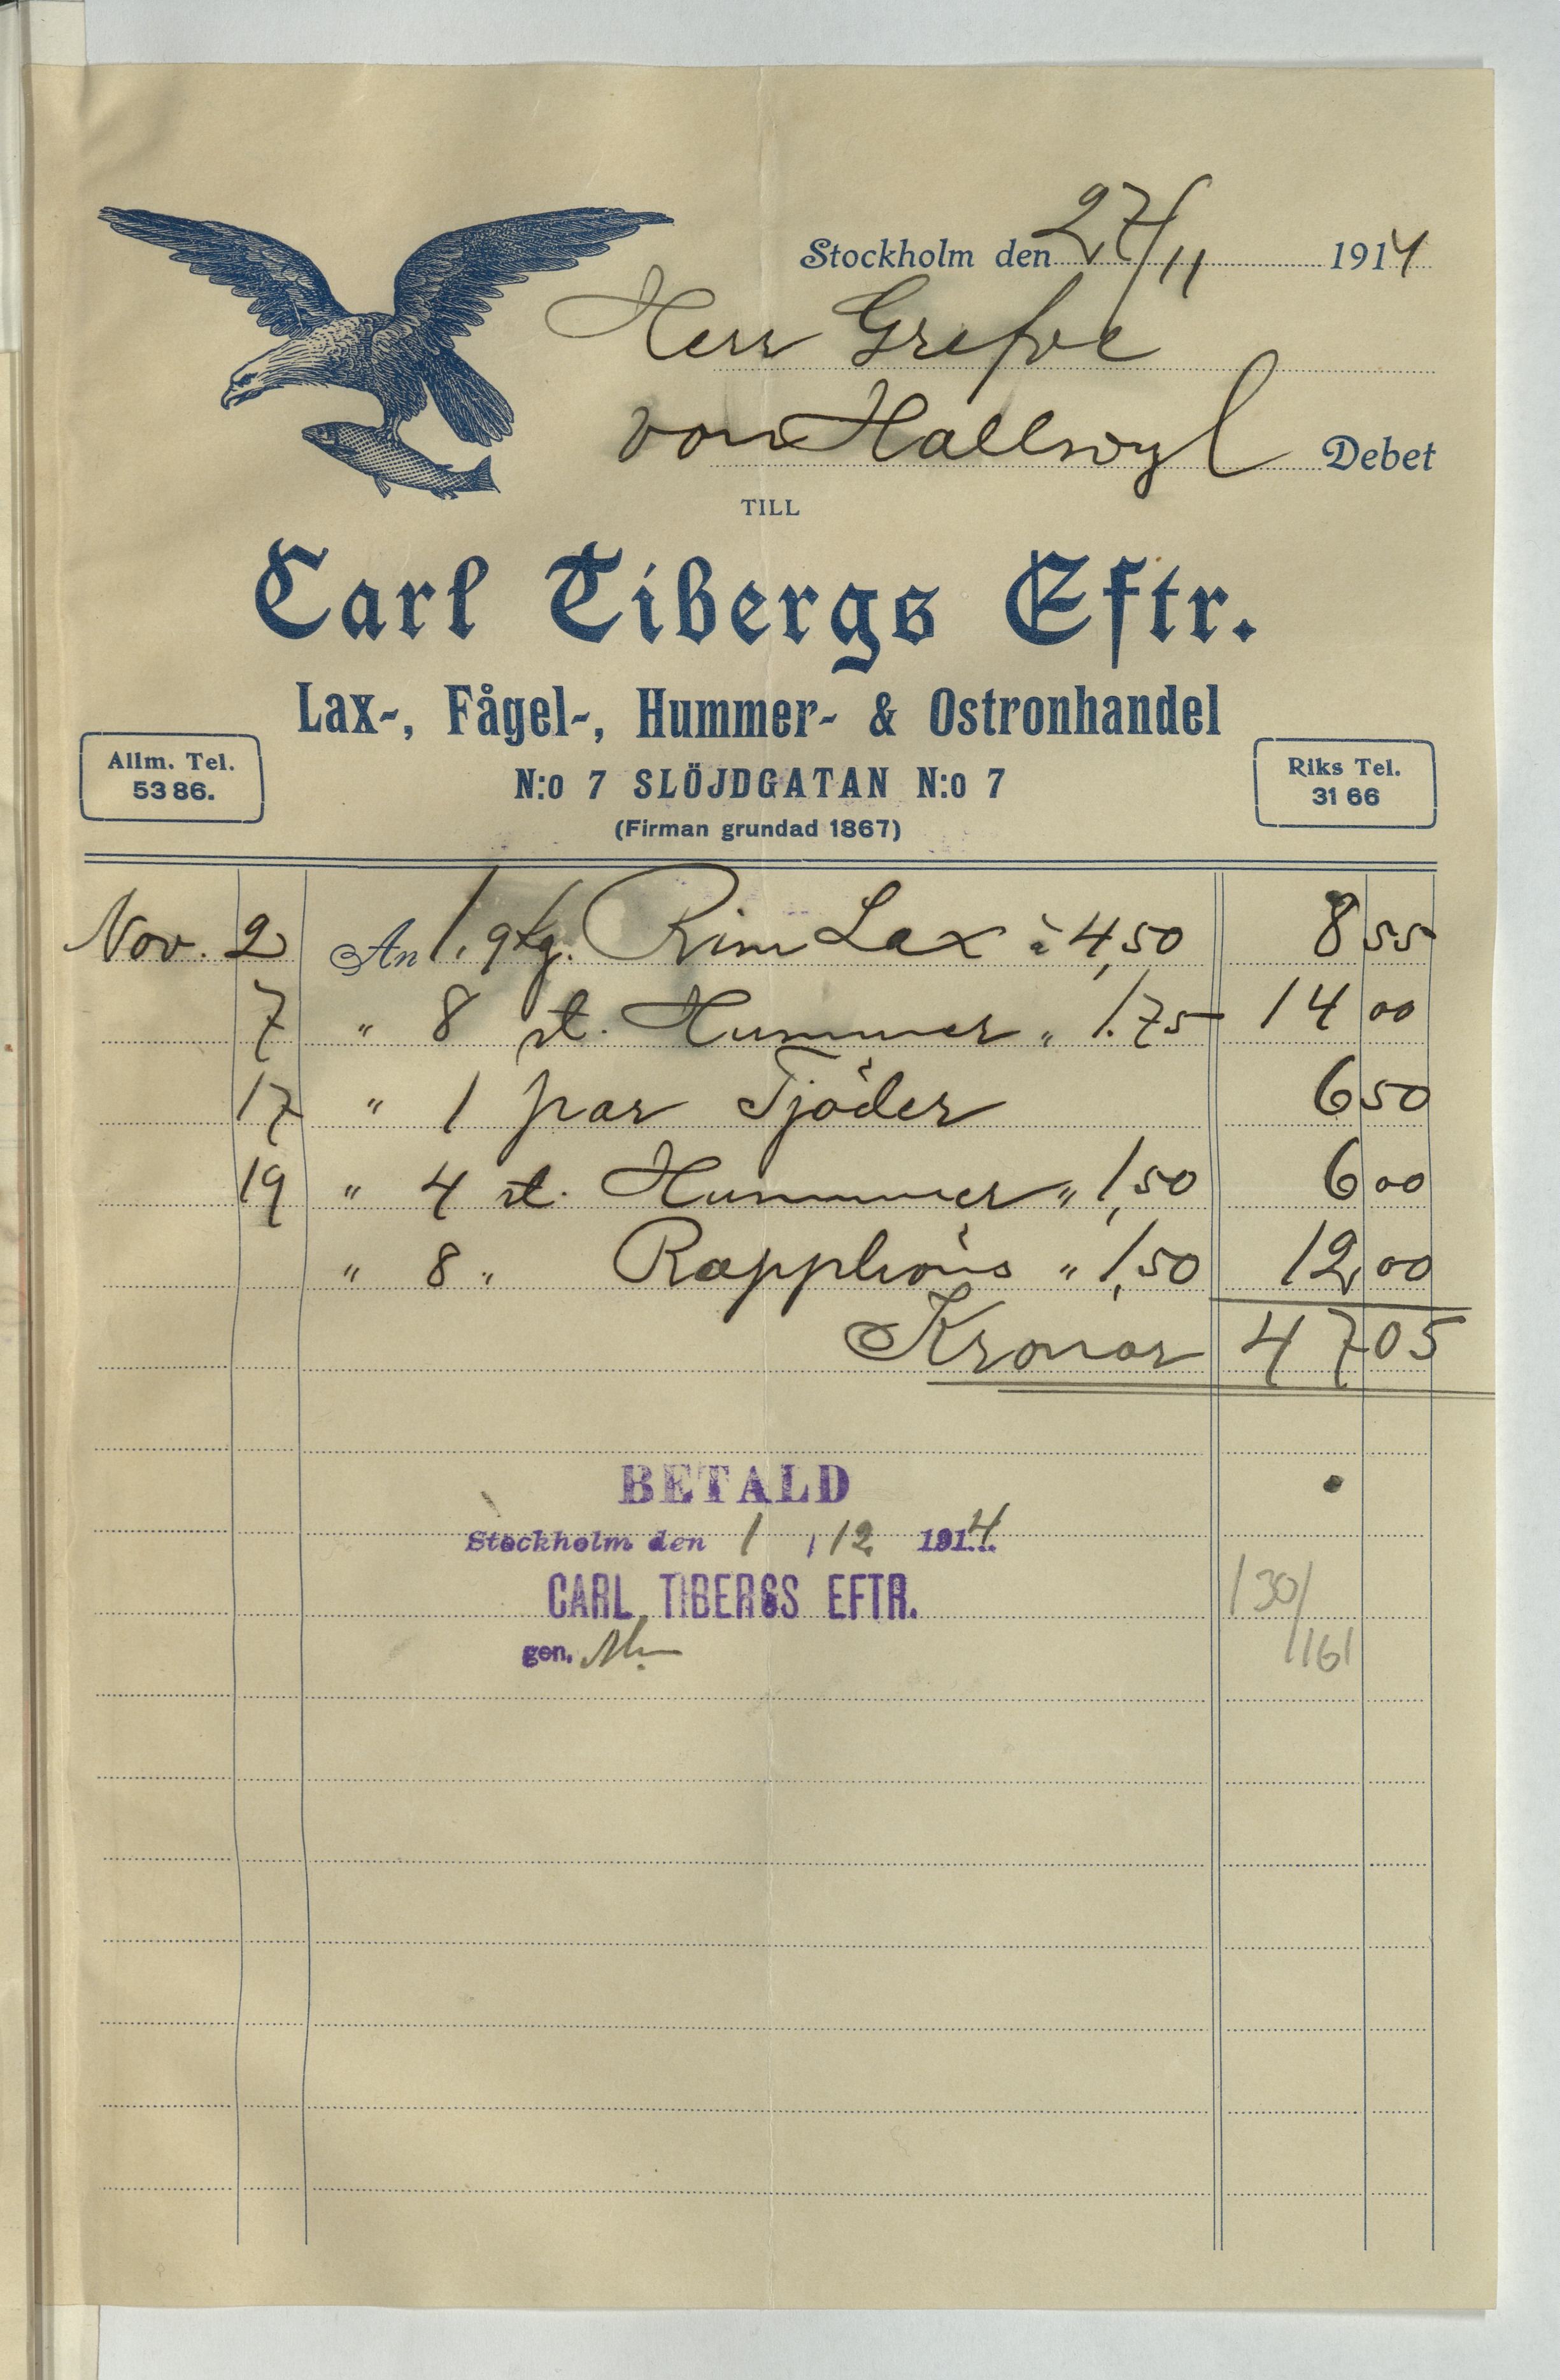 Stockholm den 27/11 1914
Herr Grefve
von Hallwyl Debet
TILL
Carl Tibergs Eftr.
Lax-, Fågel-, Hummer- & Ostronhandel
Allm. Tel.
53 86.
N:o 7 SLÖJDGATAN N:o 7
Riks Tel.
31 66
(Firman grundad 1867)
Nov. 2 An 1,9 kg. Rim Lax à 4,50 8 55
7 " 8 st. Hummer " 1.75 14 00
17 " 1 par Tjäder 6 50
19 " 4 st. Hummer " 1,50 6 00
" 8 " Rapphöns " 1,50 12,00
Kronor 47 05
BETALD
Stockholm den 1 / 12 1914
CARL TIBERGS EFTR.
gen.
130/
1161